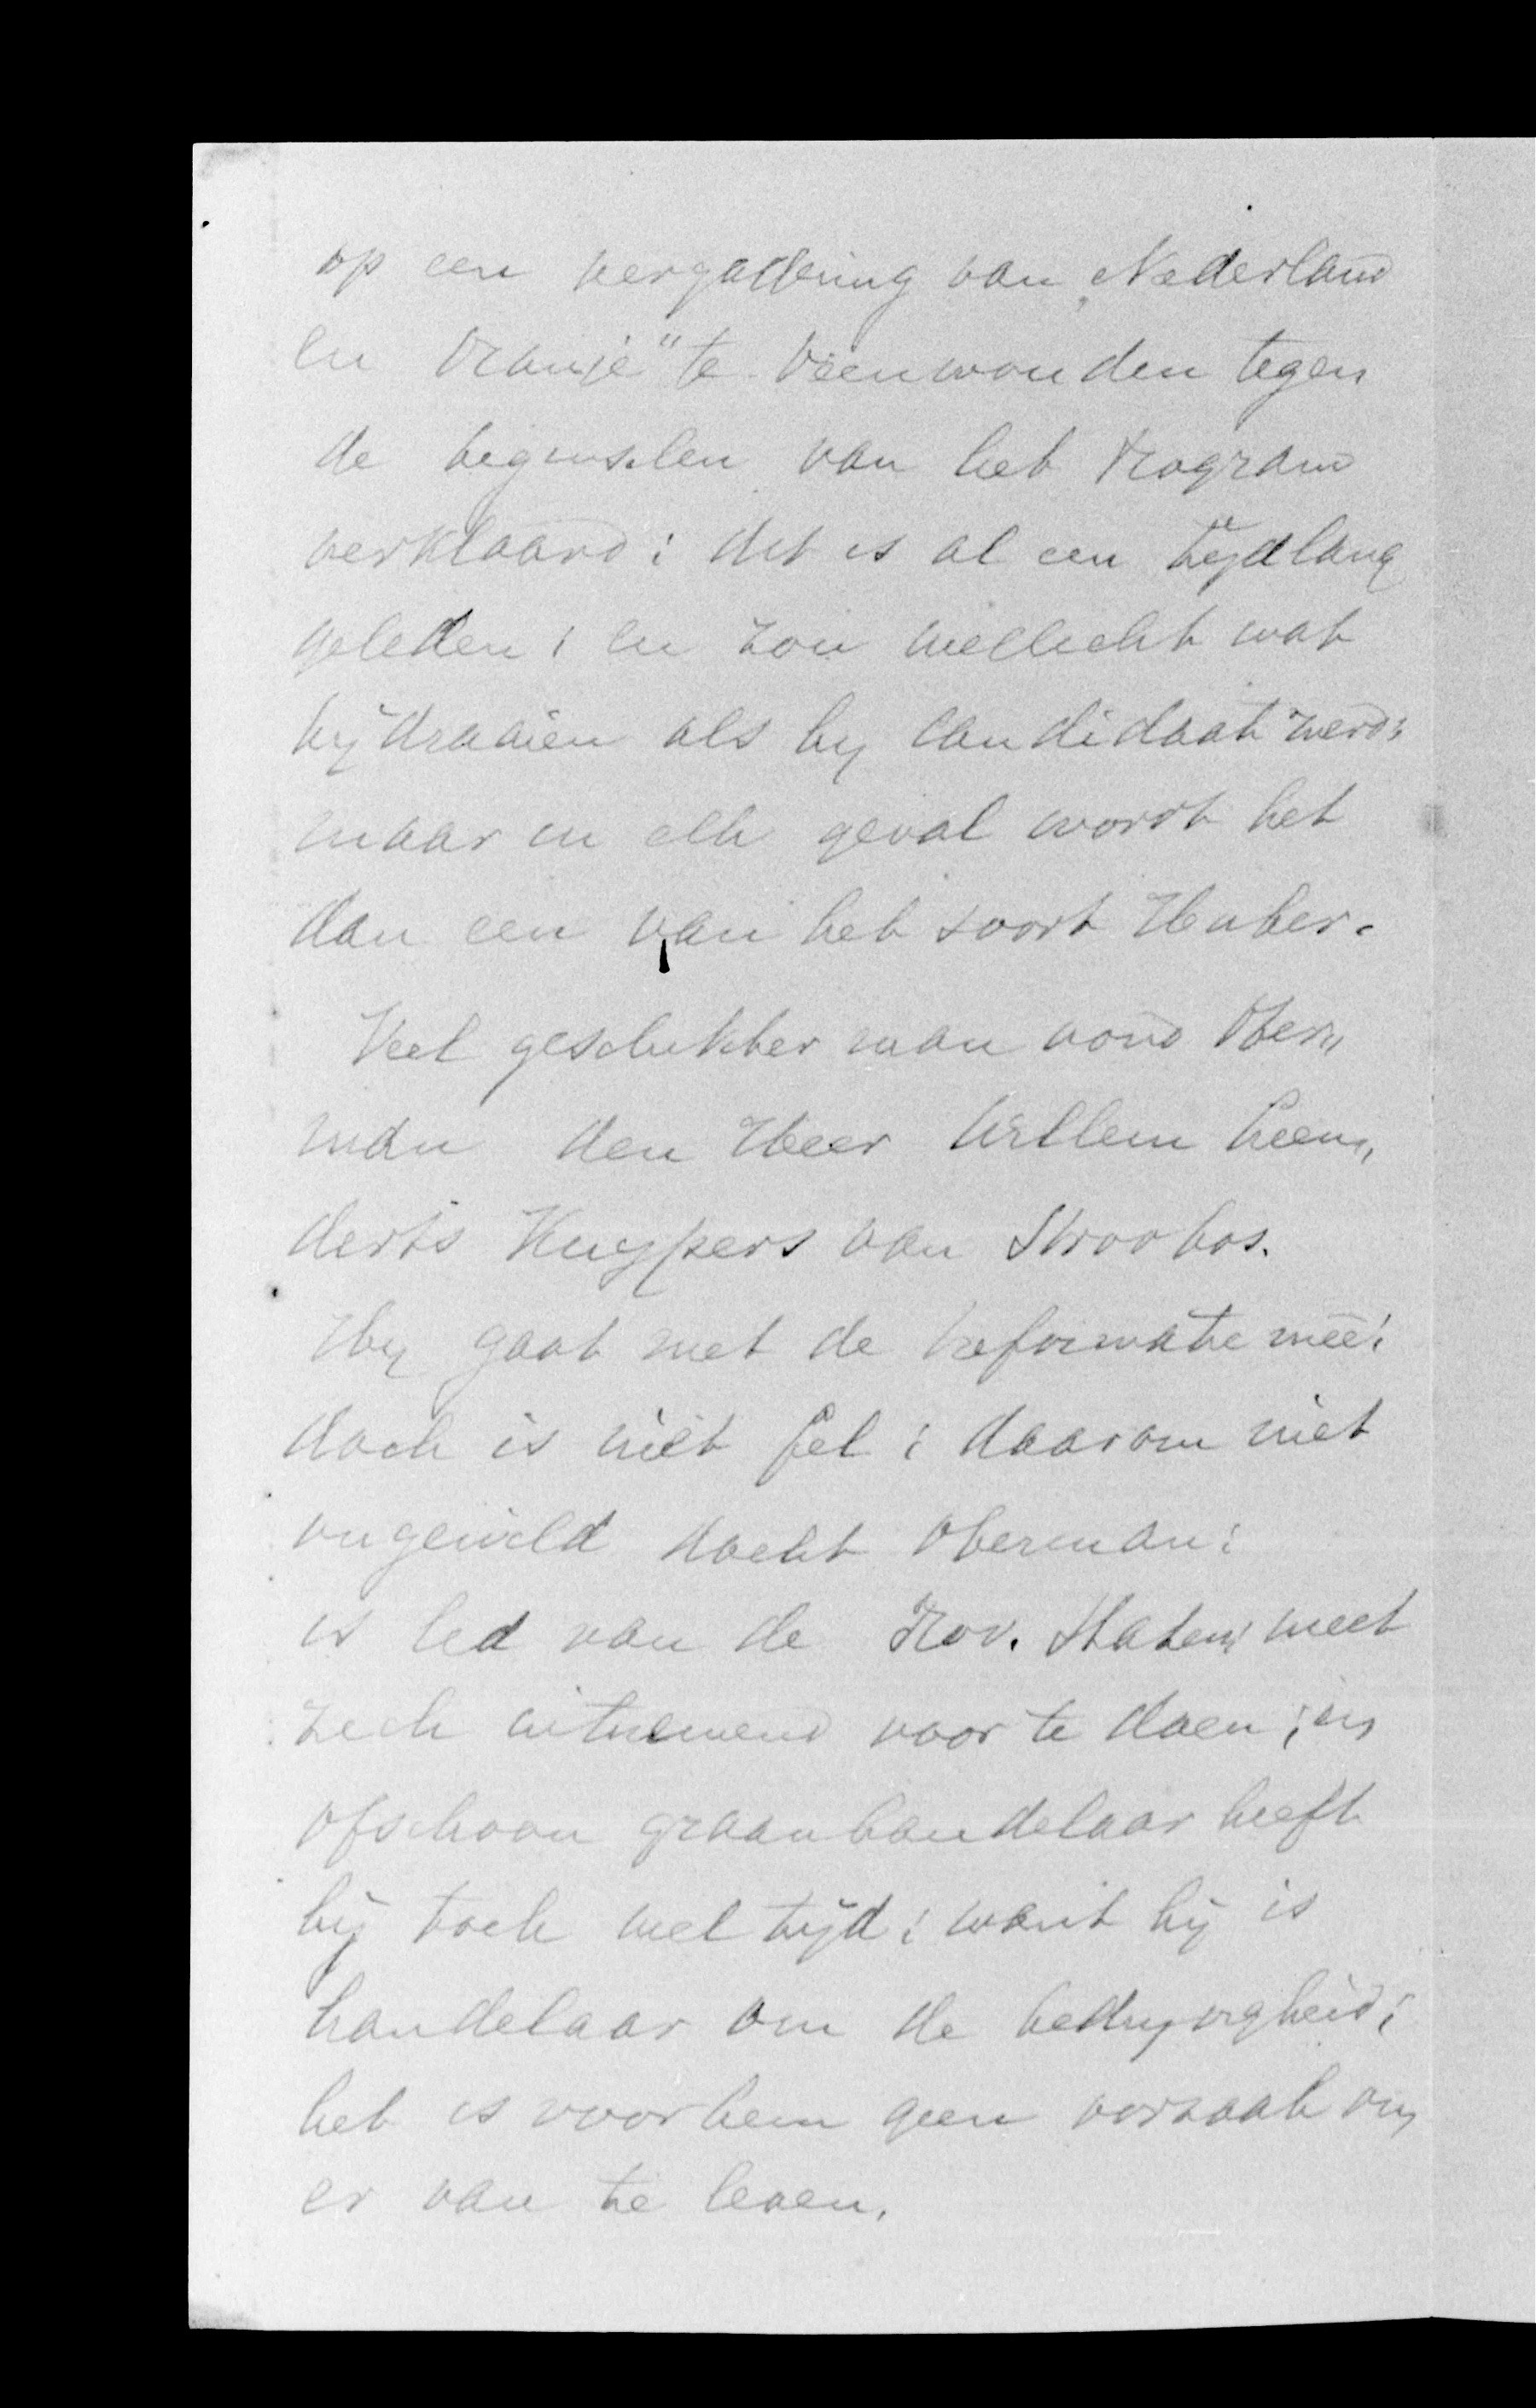 op een vergadering van „Nederland
en Oranje" te Veenwouden tegen
de beginselen van het Program
verklaard; dit is al een tijdlang
geleden; en zou wellicht wat
bijdraaien als hij candidaat werd;
maar in elk geval wordt het
dan een van het soort Huber.
Veel geschikter man vond Ober„
man den Heer Willem Reen„
derts Kuypers van Stroobos.
Hij gaat met de reformatie meê;
doch is niet fel; daarom niet
ongewild dacht Oberman;
is lid van de Prov. Staten; weet
zich uitnemend voor te doen; en
ofschoon graanhandelaar heeft
hij toch wel tijd; want hij is
handelaar om de bedrijvigheid;
het is voor hem geen oorzaak om
er van te leven.